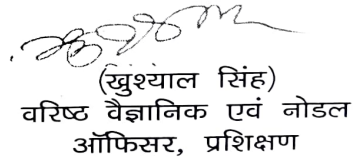 (खुश्याल सिंह)
वरिष्ठ वैज्ञानिक एवं नोडल
ऑफिसर, प्रशिक्षण